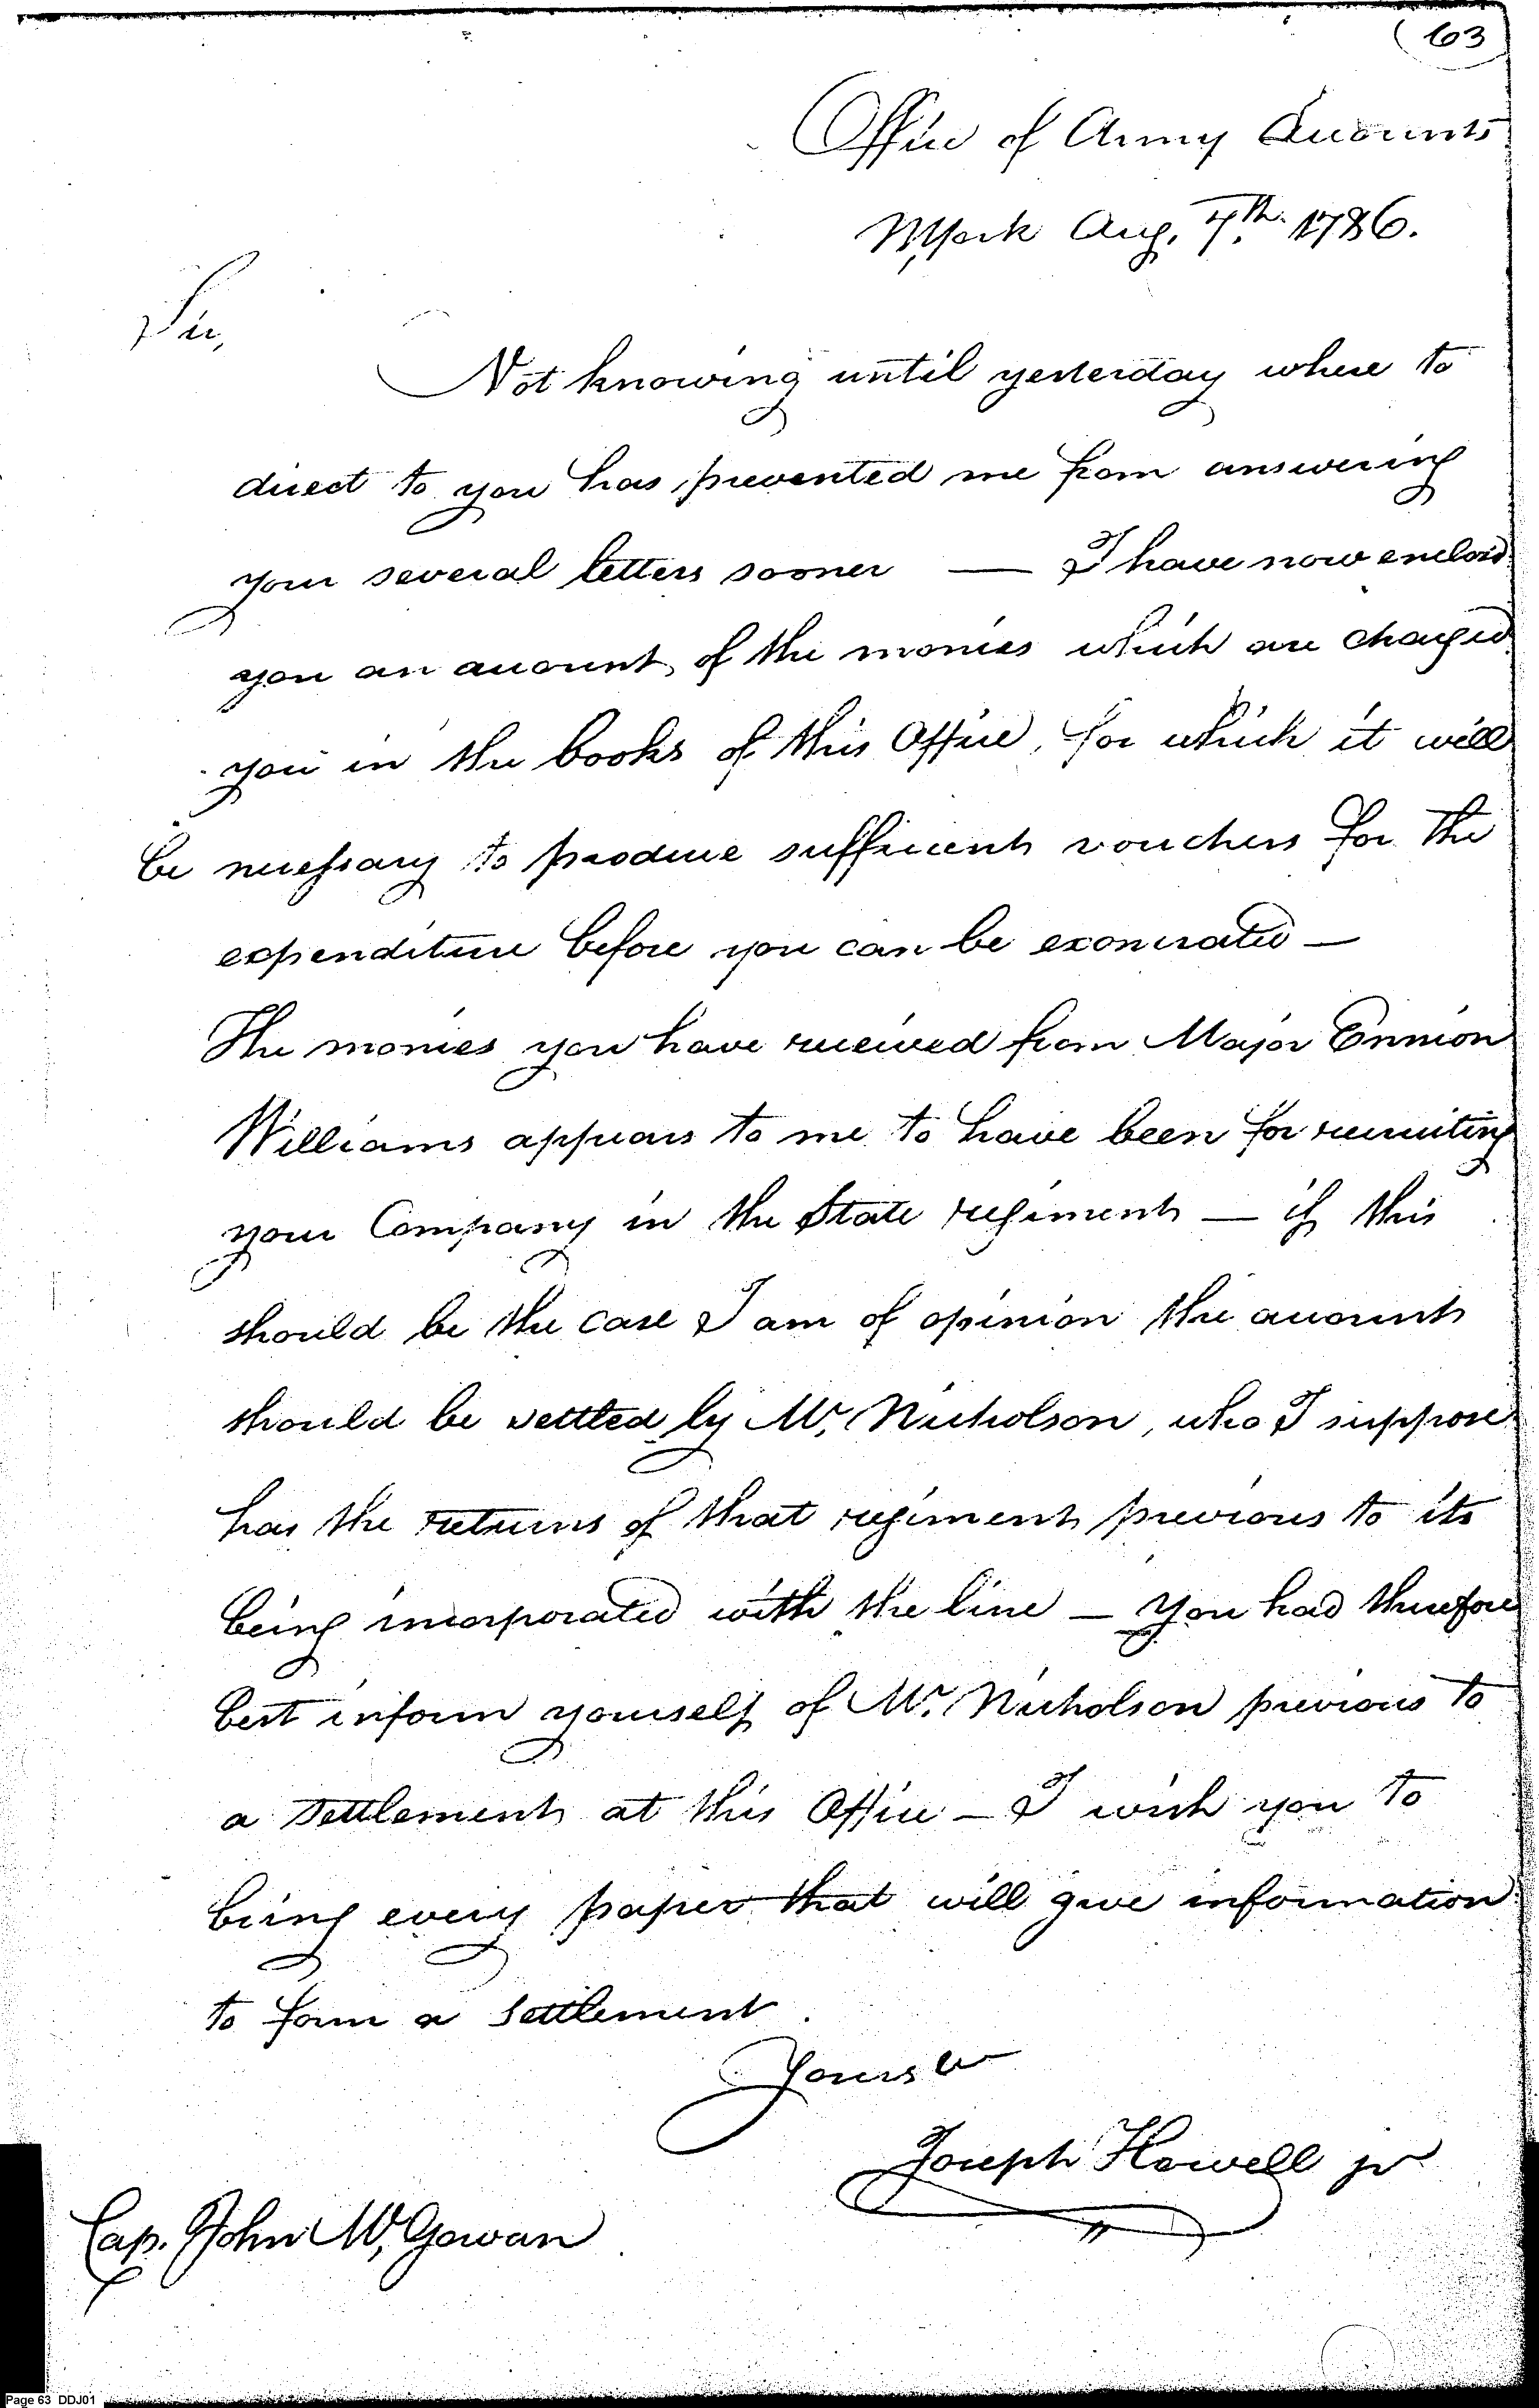 (63
Office of Army Accounts
NYork Aug. 7th. 1786.
Sir,
Not knowing until yesterday where to
direct to you has prevented me from answering
your several letters sooner — I have now enclosd
you an account of the monies which are charged
you in the books of this Office, for which it will
be necessary to produce sufficient vouchers for the
expenditure before you can be exonerated —
The monies you have received from Major Ennion
Williams appears to me to have been for recruiting
your Company in the State regiment — if this
should be the case I am of opinion the accounts
should be settled by Mr. Nicholson, who I suppose
has the returns of that regiment previous to its
being incorporated with the line — you had therefore
best inform yourself of Mr. Nicholson previous to
a settlement at this Office — I wish you to
bring every paper that will give information
to form a settlement.
Yours &c
Joseph Howell jr
Cap. John Mc,Gowan
Page 63 DDJ01